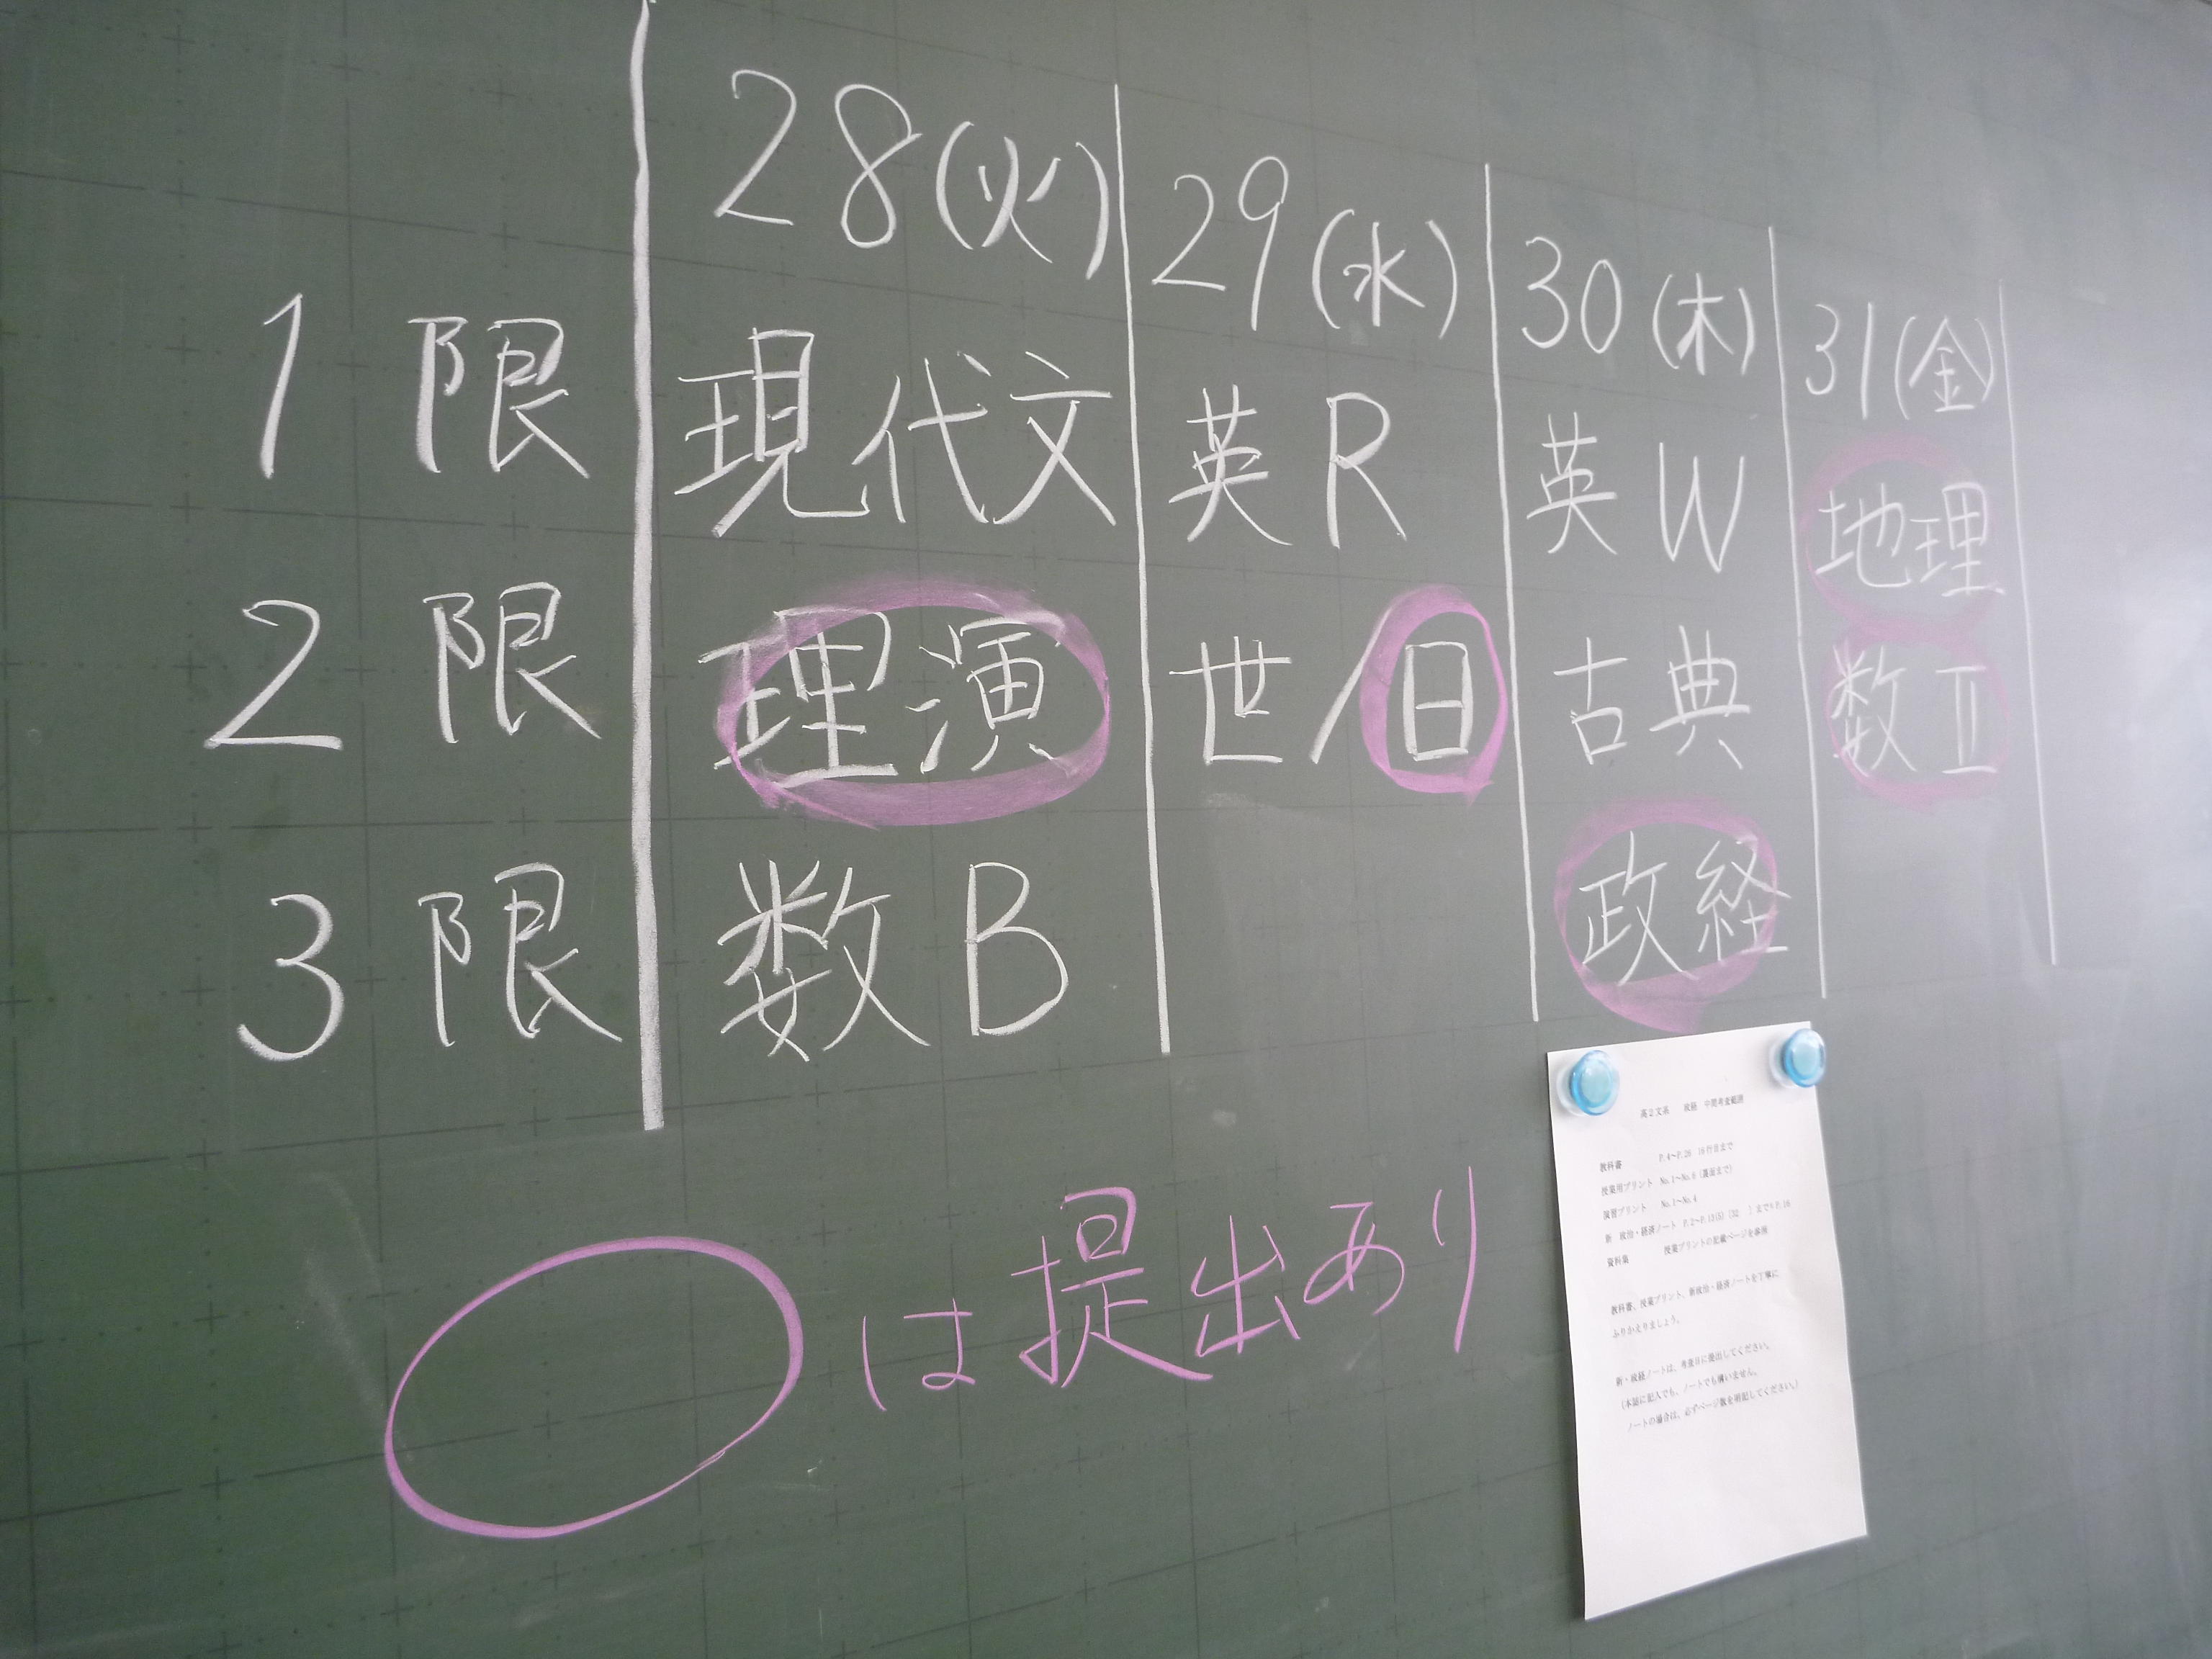 28(火) 29(水) 30(木) 31(金)
1限 現代文 英R 英W 地理
2限 理演 世/日 古典 数II
3限 数B 政経
は提出あり
高2文系 政経 中間考査範囲
教科書 P.4～P.26 16行目まで
授業用プリント No.1～No.6（裏面まで）
演習プリント No.1～No.4
新 政治・経済ノート
資料集 授業プリントの記載ページを参照
教科書、授業プリント、新政治・経済ノートを丁寧に
ふりかえりましょう。
新・政経ノートは、考査日に提出してください。
（本誌に記入でも、ノートでも構いません。
ノートの場合は、必ずページ数を明記してください。）